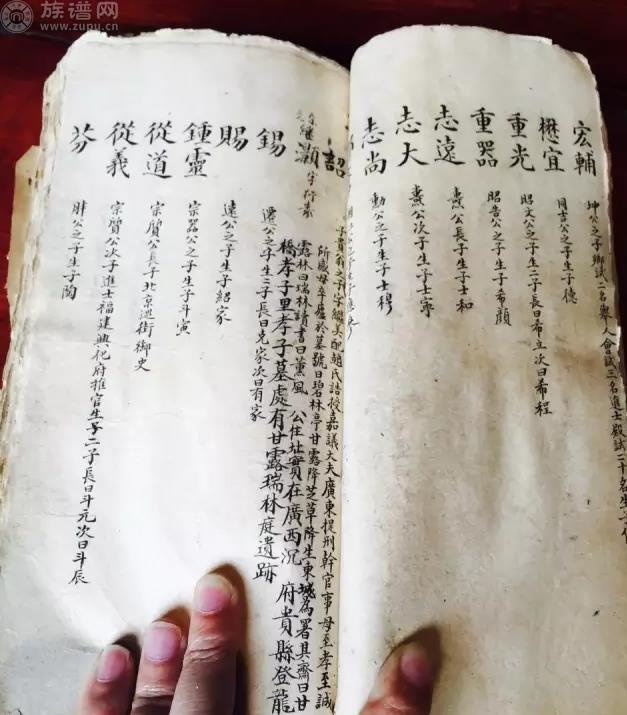 族谱网
www.zupu.cn
宏輔
坤公之子鄉試二名舉人會試三名進士殿試二十名生子
懋宜
同吉公之子生子德
重光
昭文公之子生二子長曰希立次曰希程
重器
昭告公之子生子希顏
志遠
燾公長子生子士和
志大
燾公次子生子士寧
志尚
勳公之子生子士穆
詔
子貴翁之子字繼美配趙氏誥授嘉議大夫廣東提刑幹官事母至孝至誠
所感母卒廬於墓號曰碧林亭甘露降芝草降生東城為署其齋曰甘
露林曰瑞林讀書曰薰風
灝字行素
公住址實在廣西沉 府貴縣登龍
橋孝子里孝子墓處有甘露瑞林庭遺跡
錫
遷公之子生二子長曰克家次曰有家
賜
遠公之子生子紹家
鍾靈
宗器公之子生子斗寅
從道
宗質公長子北京巡街御史
從義
宗質公次子進士福建興化府推官生子二子長曰斗元次曰斗辰
芬
胖公之子生子陶